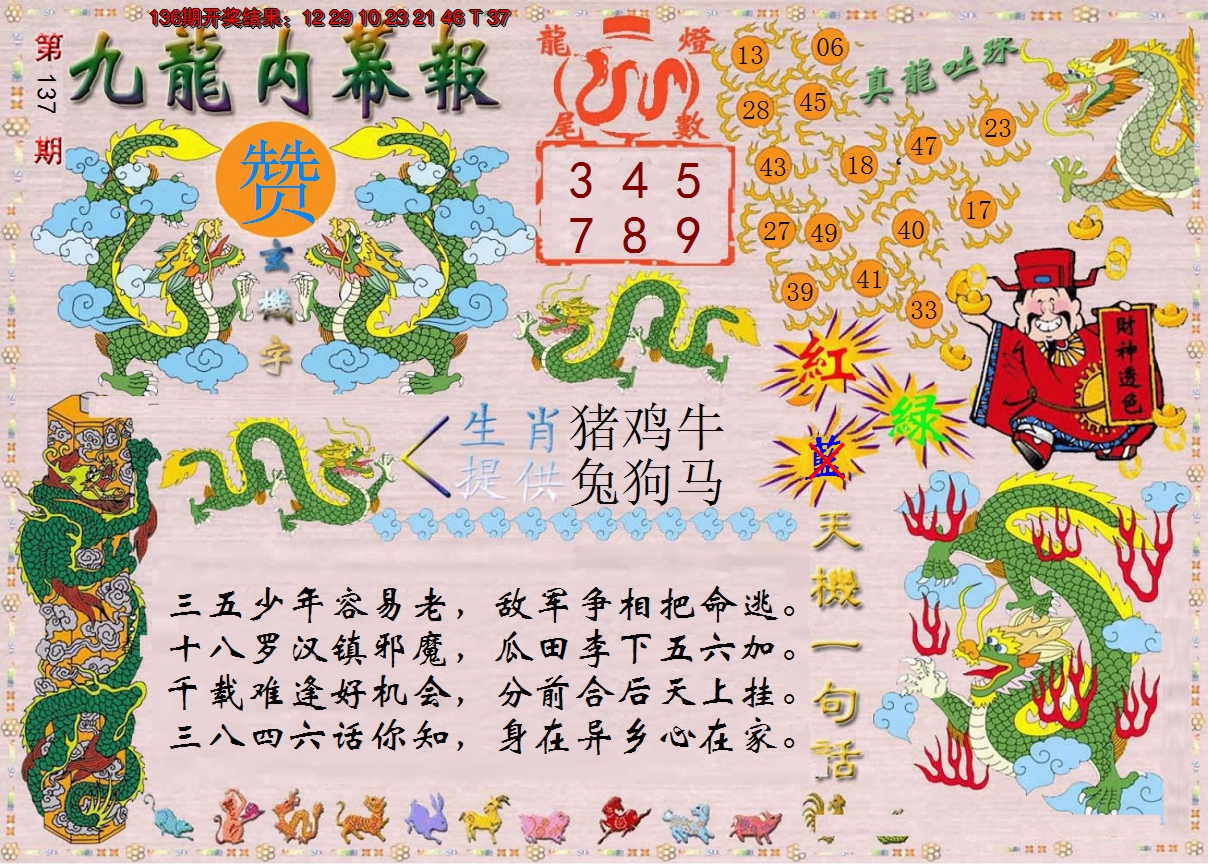 136期开奖结果：12 29 10 23 21 46 T 37
第137期
九龍内幕報
赞
玄機字
龍燈尾數
3 4 5
7 8 9
真龍吐珠
13 06
28 45
43 18 47 23
27 49 40 17
39 41 33
財神透色
紅
綠
藍
生肖提供
猪鸡牛
兔狗马
三五少年容易老，敌军争相把命逃。
十八罗汉镇邪魔，瓜田李下五六加。
千载难逢好机会，分前合后天上挂。
三八四六话你知，身在异乡心在家。
天機一句話